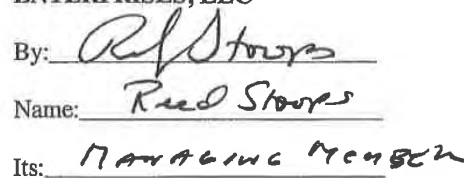 ENTERPRISES, LLC
By: Reed Stoops
Name: Reed Stoops
Its: MANAGING MEMBER